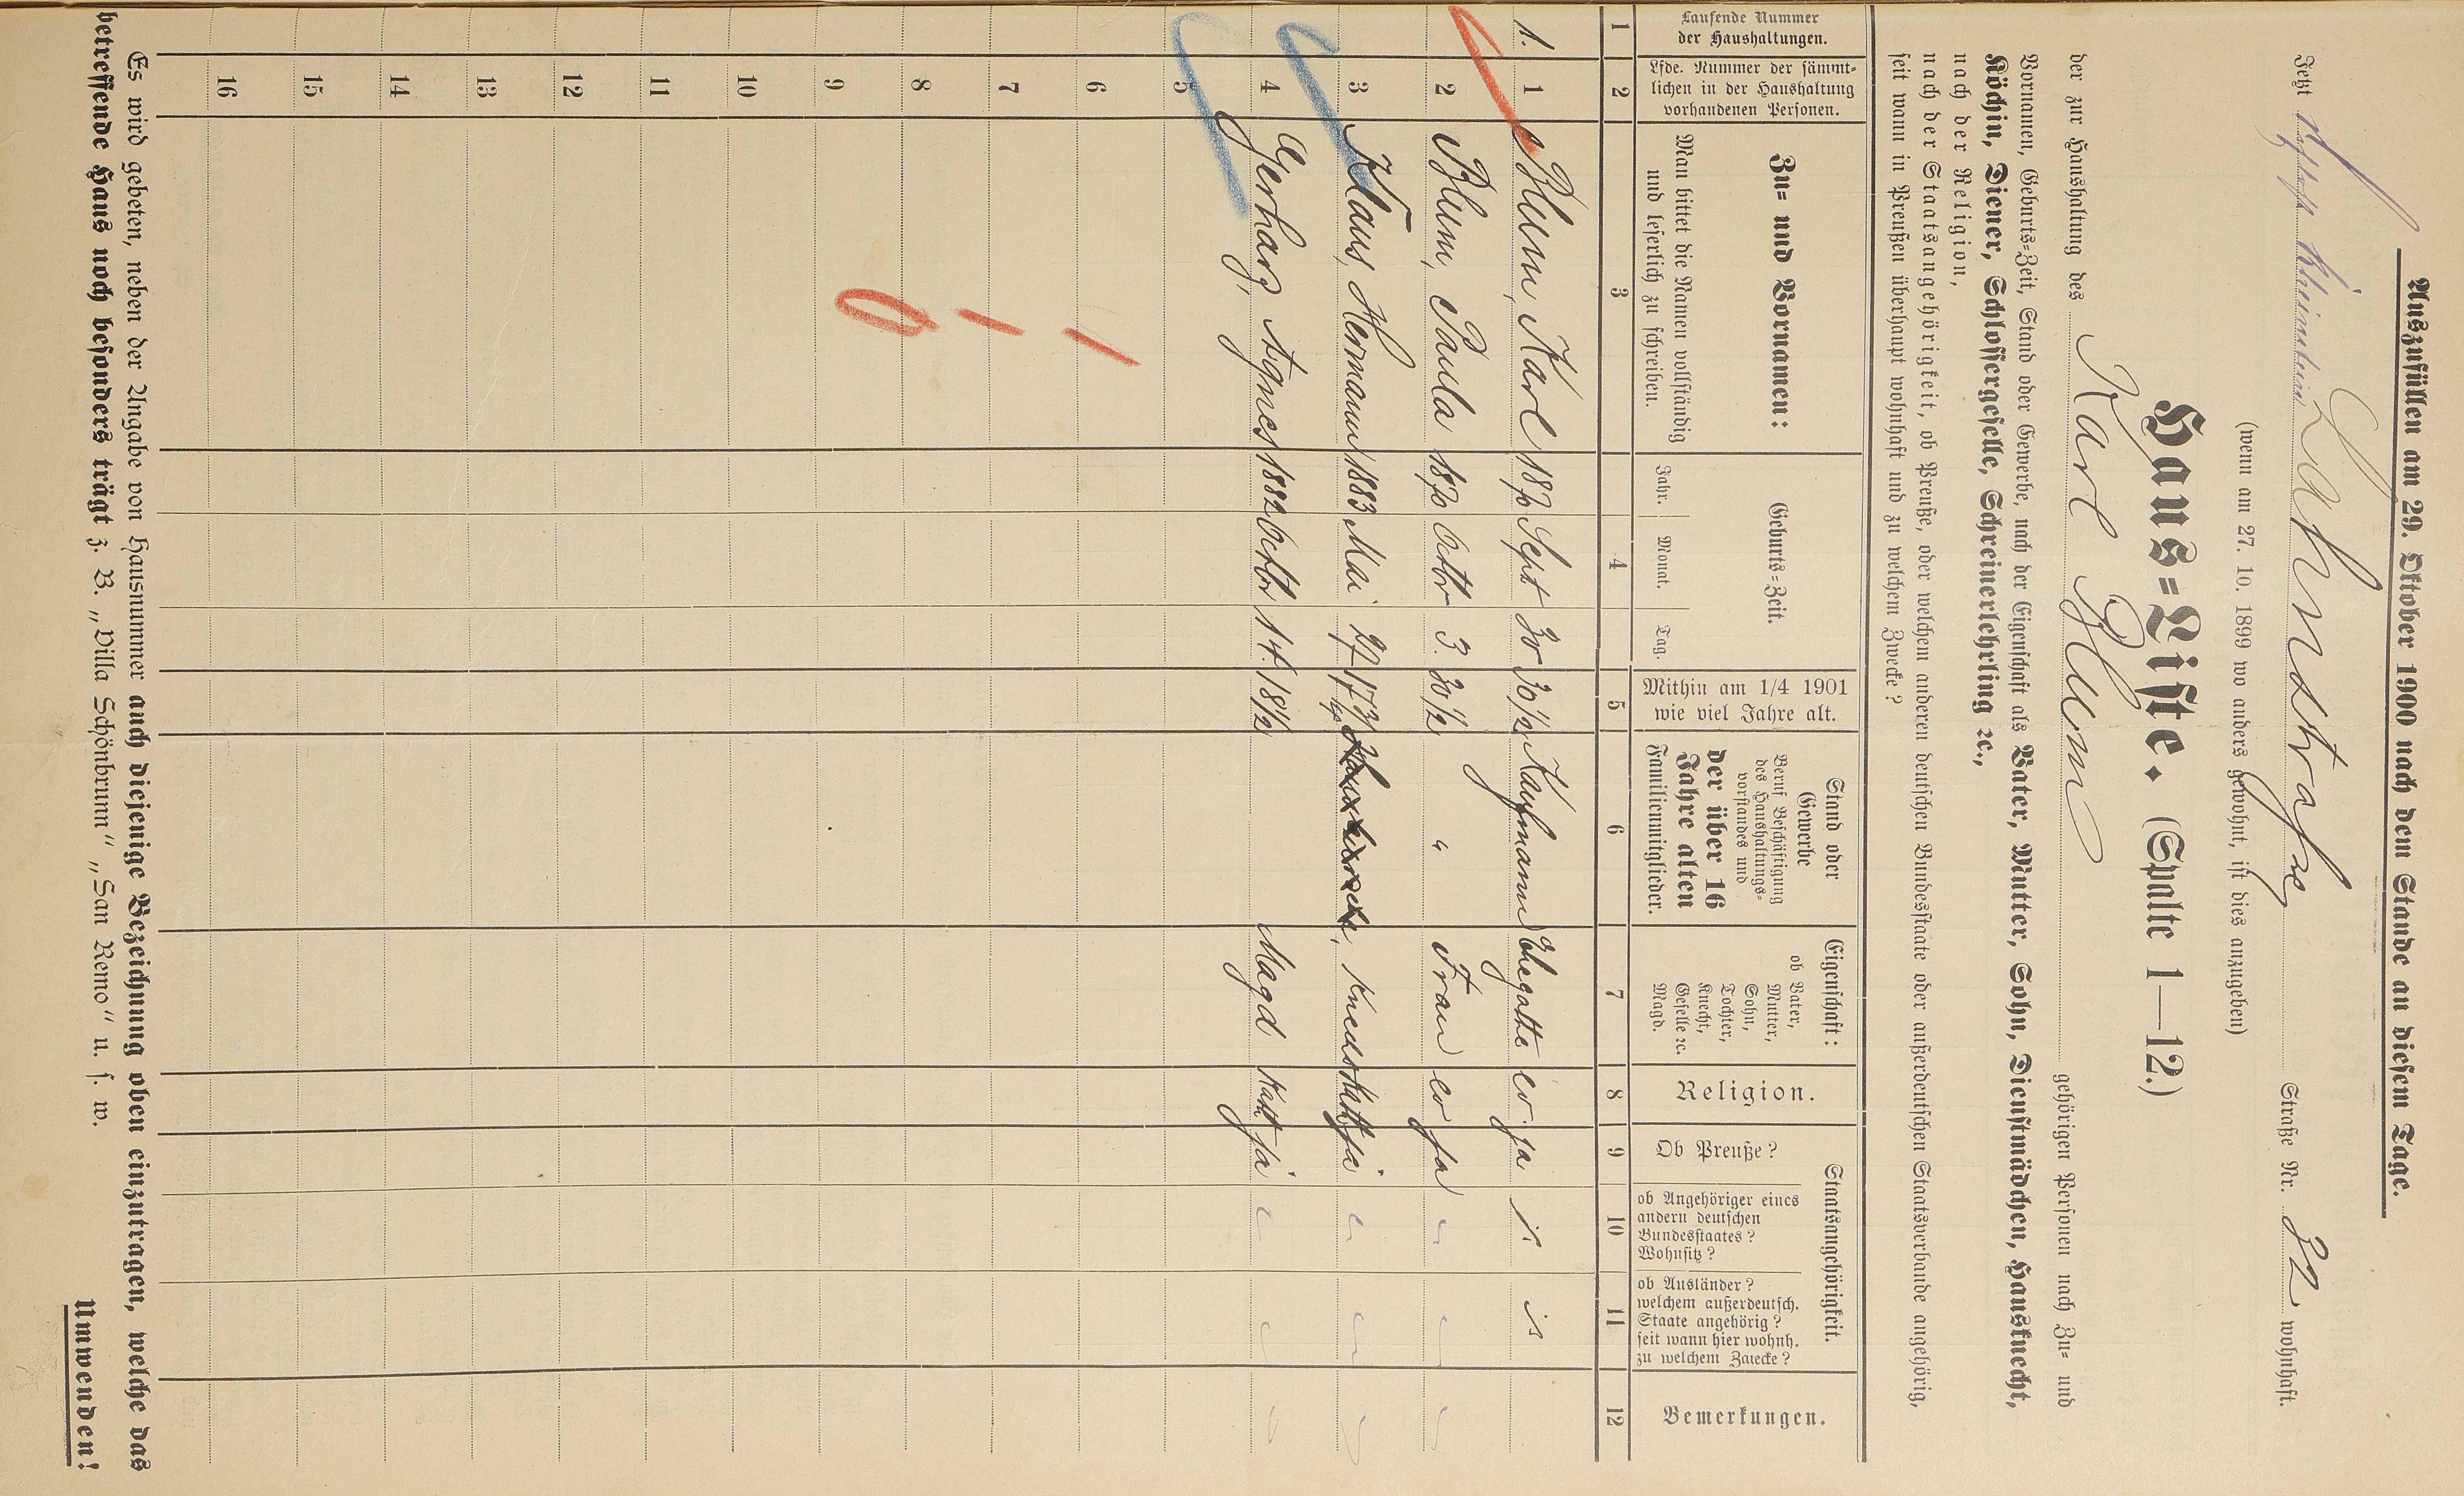 Auszufüllen am 29. Oktober 1900 nach dem Stande an diesem Tage.
Jetzt Landstraße Straße Nr. 32 wohnhaft.
(wenn am 27. 10. 1899 wo anders gewohnt, ist dies anzugeben)
Haus=Liste. (Spalte 1—12.)
der zur Haushaltung des Karl Blum gehörigen Personen nach Zu= und
Vornamen, Geburts=Zeit, Stand oder Gewerbe, nach der Eigenschaft als Vater, Mutter, Sohn, Dienstmädchen, Hausknecht,
Köchin, Diener, Schlossergeselle, Schreinerlehrling ꝛc.,
nach der Religion,
nach der Staatsangehörigkeit, ob Preuße, oder welchem anderen deutschen Bundesstaate oder außerdeutschen Staatsverbande angehörig,
seit wann in Preußen überhaupt wohnhaft und zu welchem Zwecke?
Laufende Nummer
der Haushaltungen.
Lfde. Nummer der sämmt=
lichen in der Haushaltung
vorhandenen Personen.
Zu= und Vornamen:
Man bittet die Namen vollständig
und leserlich zu schreiben.
Geburts=Zeit.
Jahr. Monat. Tag.
Mithin am 1/4 1901
wie viel Jahre alt.
Stand oder
Gewerbe
Beruf Beschäftigung
des Haushaltungs=
vorstandes und
der über 16
Jahre alten
Familienmitglieder.
Eigenschaft:
ob Vater,
Mutter,
Sohn,
Tochter,
Knecht,
Geselle ꝛc.
Magd.
Religion.
Staatsangehörigkeit.
Ob Preuße?
ob Angehöriger eines
andern deutschen
Bundesstaates?
Wohnsitz?
ob Ausländer?
welchem außerdeutsch.
Staate angehörig?
seit wann hier wohnh.
zu welchem Zwecke?
Bemerkungen.
1 2 3 4 5 6 7 8 9 10 11 12
1. 1 Blum, Karl 1870 Sept 30 30 1/2 Kaufmann Ehegatte ev. ja
2 Blum, Paula 1870 Octbr 3. 30 1/2 " Frau ev ja
3 Klaus, Hermann 1883 Mai 27 17 Knecht Kath ja
4 Gerharz, Agnes 1882 Octbr 14. 18 1/2 Magd Kath ja
5
6
7
8
9
10
11
12
13
14
15
16
Es wird gebeten, neben der Angabe von Hausnummer auch diejenige Bezeichnung oben einzutragen, welche das
betreffende Haus noch besonders trägt z. B. „Villa Schönbrunn“ „San Remo“ u. s. w.
Umwenden!